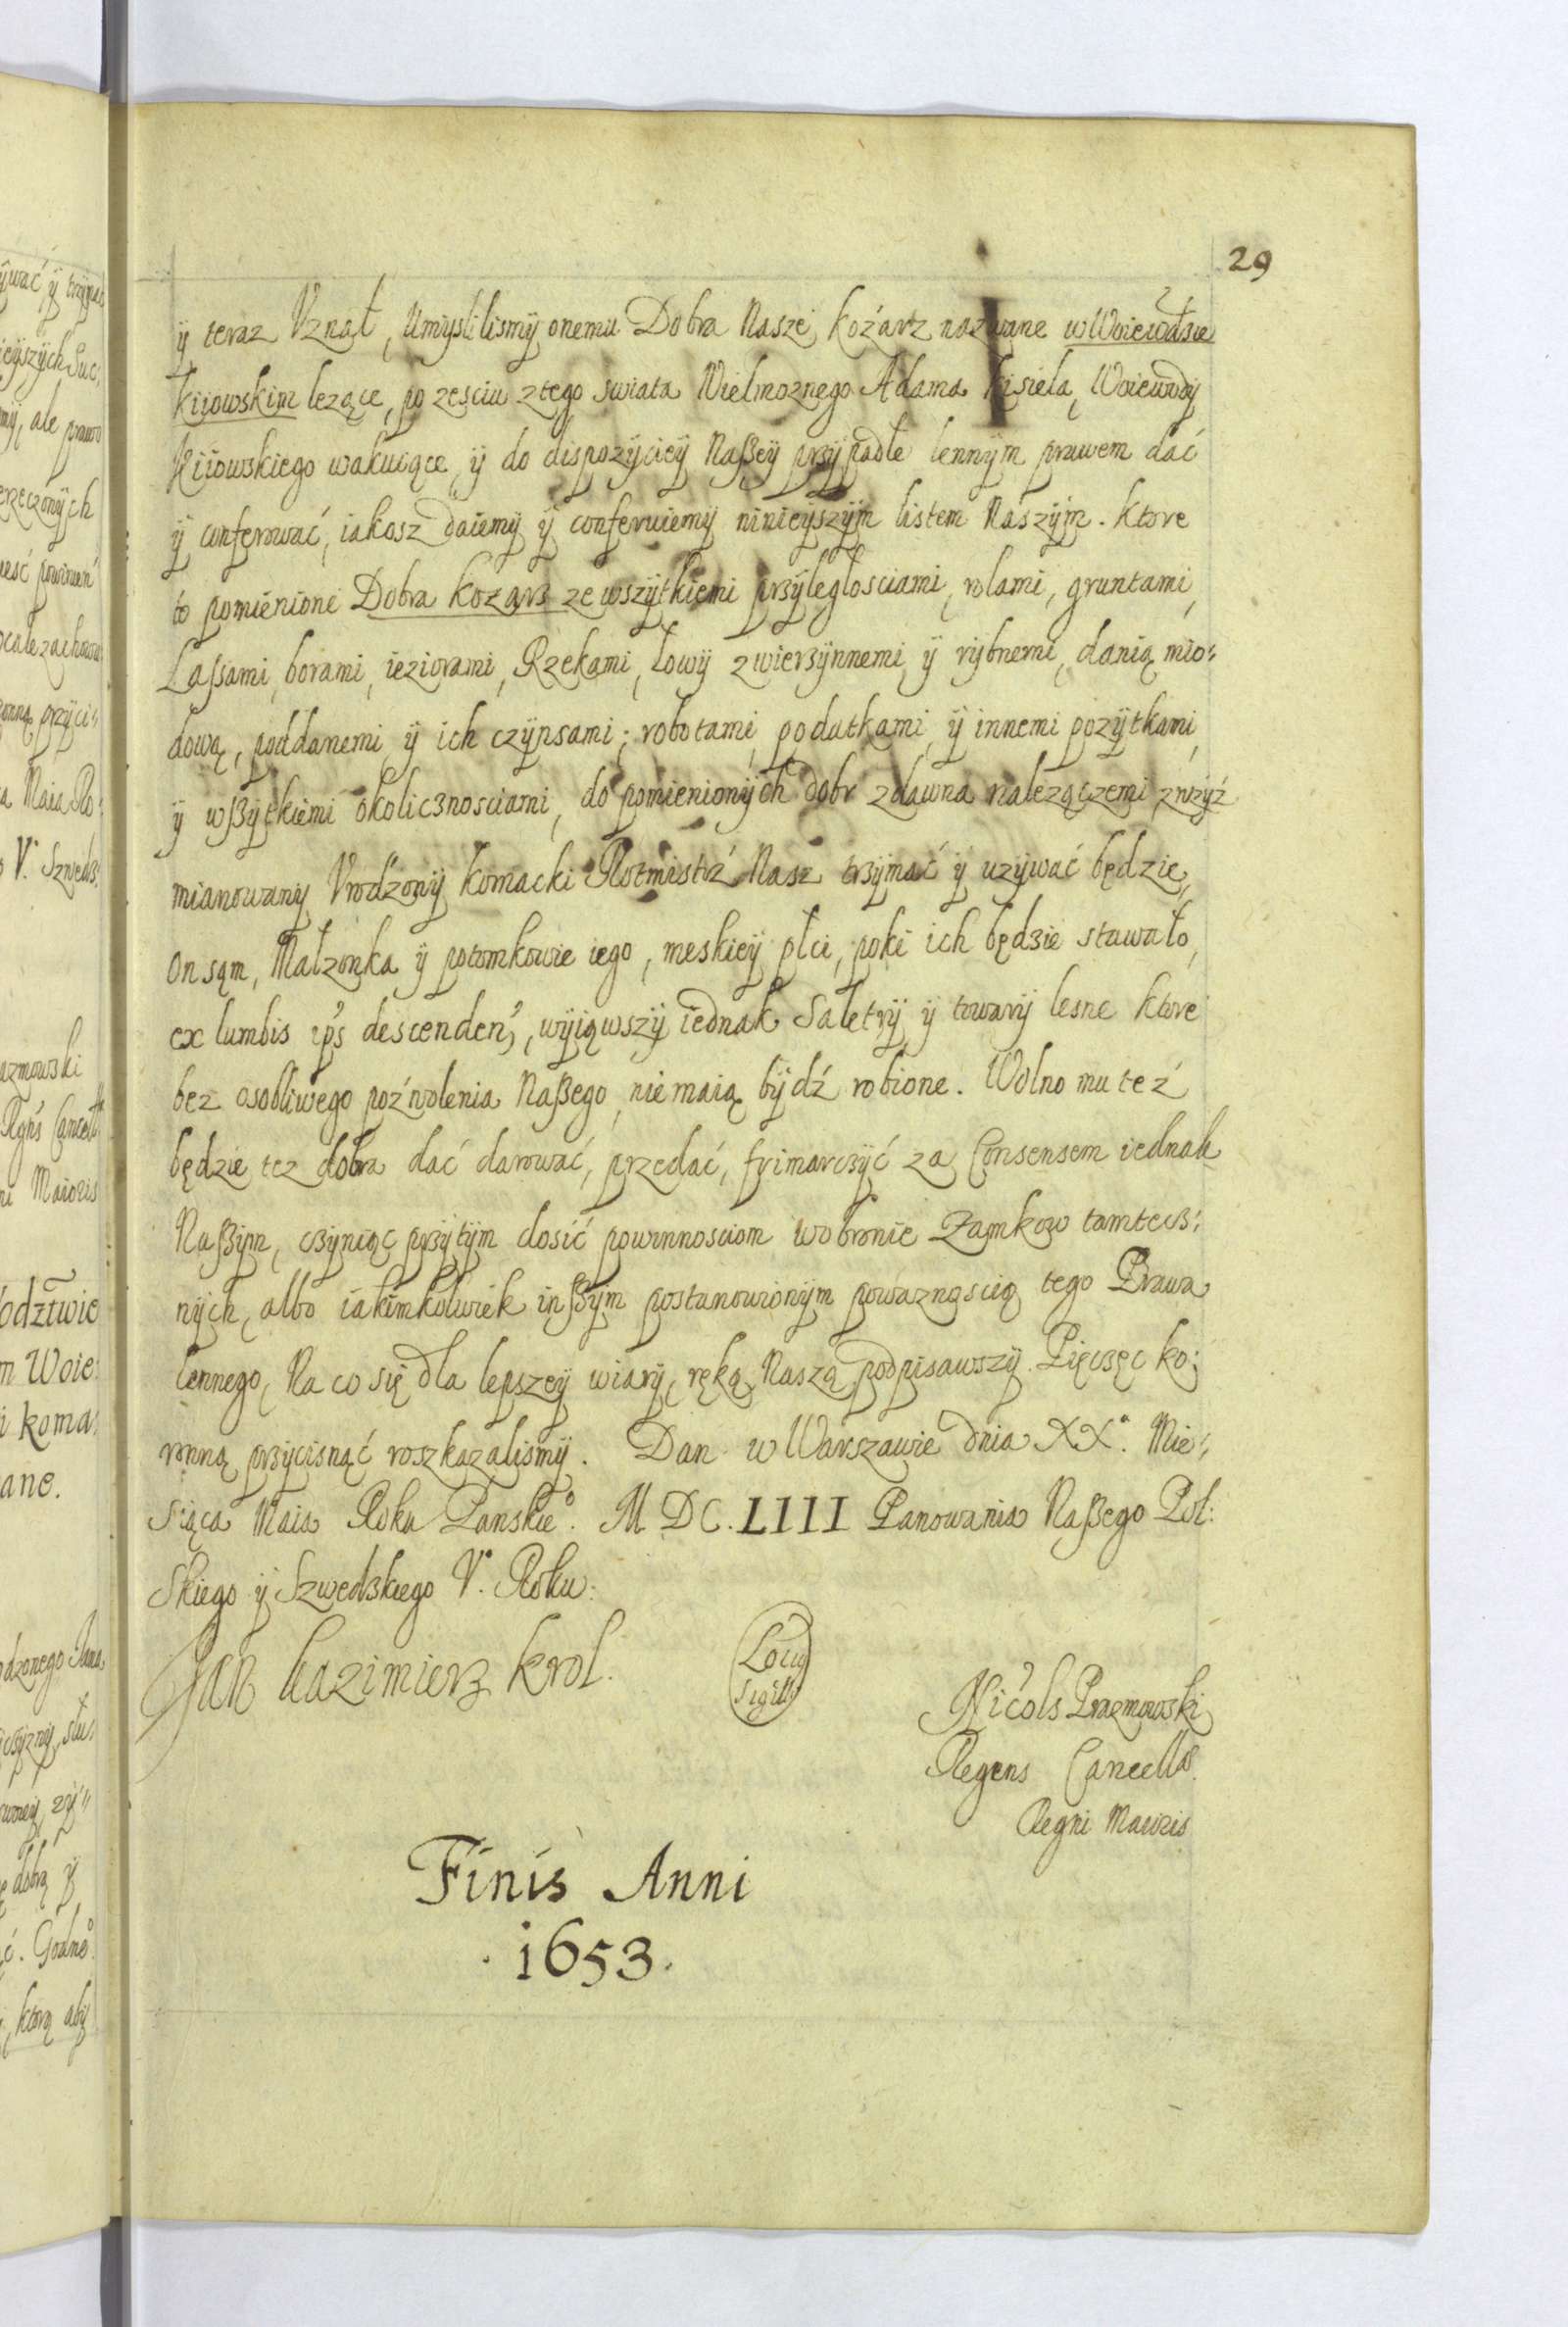 29
ÿ teraz Vznał, Umyslilismÿ onemu Dobra Nasze koźarz nazwane w Woiewdztwie
kiiowskim lezące, po ześciu z tego swiata Wielmoznego Adama kisiela, Woiewody
Kiiowskiego wakuiące ÿ do dispozÿcieÿ Naßeÿ przÿpadłe lennÿm prawem dać
ÿ conferować, iakosz daiemÿ ÿ conferuiemÿ ninieÿszÿm listem Naszÿm. ktore
to pomienione Dobra kozarz ze wszÿtkiemi przÿległosciami, rolami, gruntami,
Laßami, borami, ieziorami, Rzekami, łowÿ zwierzÿnnemi ÿ rÿbnemi, danią mio⸗
dową, poddanemi ÿ ich czÿnsami, robotami, podatkami, ÿ innemi pozÿtkami,
ÿ wßÿtkiemi okolicznosciami, do pomienionÿch dobr zdawna nalezączemi, zwÿż
mianowanÿ Vrodzonÿ komacki Rotmistrz Nasz trzÿmać ÿ uzÿwać będzie,
on sąm, Małzonka ÿ potomkowie iego, meskieÿ płci, poki ich będzie stawało,
ex lumbis ip's descenden', wÿiąwszÿ iednak Saletrÿ ÿ towarÿ lesne ktore
bez osobliwego poźwolenia Naßego, nie maią bÿdź robione. Wolno mu też
będzie tez dobra dać darować, przedać, frimarczÿć za Consensem iednak
Naßÿm, czÿniąc przÿtÿm dosić powinnosciom w obronie Zamkow tamtecz⸗
nÿch, albo iakimkolwiek inßÿm postanowionÿm powaznoscią tego Prawa
lennego, Na co się dla lepszeÿ wiarÿ, ręką Naszą podpisawszÿ. Pięczęc ko⸗
ronną przÿcisnąć roszkazalismÿ. Dan w Warszawie dnia XX°. Mie⸗
siąca Maia Roku Panskie°. M DC. LIII Panowania Naßego Pol:
skiego ÿ Szwedzkiego V. Roku.
Jan kazimierz krol.
Locus
Sigilli
Nicols Prazmowski
Regens Cancellae
Regni Maioris
Finis Anni
. 1653.